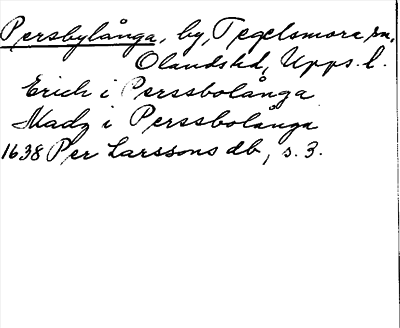 Persbylånga, by, Tegelsmora sn,
Olands hd, Upps. l.
Erich i Perssbolånga
Madz i Perssbolånga
1638 Per Larssons db, s. 3.